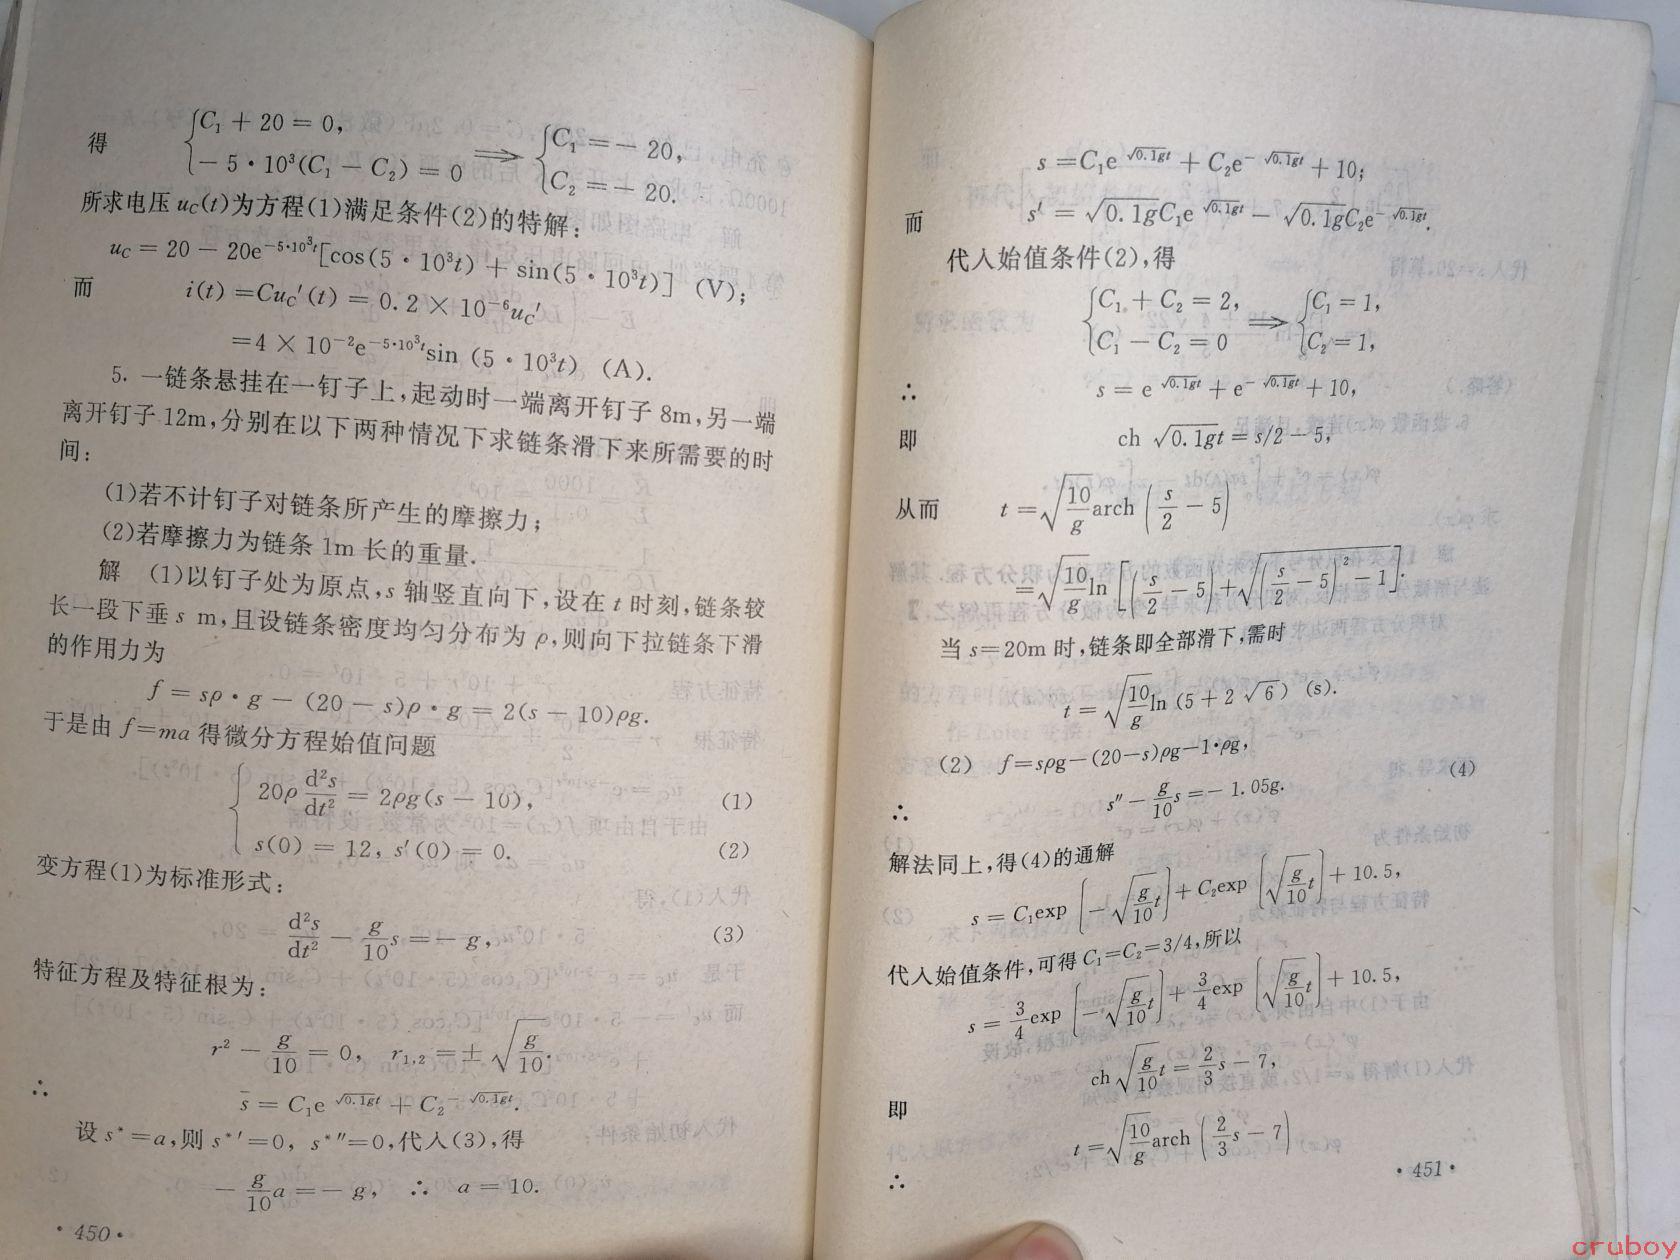 得 {C₁ + 20 = 0, − 5 · 10³(C₁ − C₂) = 0 ⟹ {C₁ = − 20, C₂ = − 20.
所求电压 u_C(t)为方程(1)满足条件(2)的特解:
u_C = 20 − 20e^{−5·10³t}[cos(5 · 10³t) + sin(5 · 10³t)] (V);
而 i(t) = Cu_C′(t) = 0.2 × 10⁻⁶u_C′
= 4 × 10⁻²e^{−5·10³t}sin (5 · 10³t) (A).
5. 一链条悬挂在一钉子上,起动时一端离开钉子 8m,另一端
离开钉子 12m,分别在以下两种情况下求链条滑下来所需要的时
间:
(1)若不计钉子对链条所产生的摩擦力;
(2)若摩擦力为链条 1m 长的重量.
解 (1)以钉子处为原点,s 轴竖直向下,设在 t 时刻,链条较
长一段下垂 s m,且设链条密度均匀分布为 ρ,则向下拉链条下滑
的作用力为
f = sρ · g − (20 − s)ρ · g = 2(s − 10)ρg.
于是由 f=ma 得微分方程始值问题
{ 20ρ d²s/dt² = 2ρg(s − 10), (1)
s(0) = 12, s′(0) = 0. (2)
变方程(1)为标准形式:
d²s/dt² − g/10 s = − g, (3)
特征方程及特征根为:
r² − g/10 = 0, r₁,₂ = ± √(g/10).
∴ s̄ = C₁e^{√0.1g t} + C₂^{− √0.1g t}.
设 s* =a,则 s*′=0, s*″=0,代入(3),得
− g/10 a = − g, ∴ a = 10.
· 450 ·
s = C₁e^{√0.1g t} + C₂e^{− √0.1g t} + 10;
而 s′ = √0.1g C₁e^{√0.1g t} − √0.1g C₂e^{− √0.1g t}.
代入始值条件(2),得
{C₁ + C₂ = 2, C₁ − C₂ = 0 ⟹ {C₁ = 1, C₂ = 1,
∴ s = e^{√0.1g t} + e^{− √0.1g t} + 10,
即 ch √0.1g t = s/2 − 5,
从而 t = √(10/g) arch (s/2 − 5)
= √(10/g) ln [(s/2 − 5) + √((s/2 − 5)² − 1)].
当 s=20m 时,链条即全部滑下,需时
t = √(10/g) ln (5 + 2 √6) (s).
(2) f=sρg−(20−s)ρg−1·ρg,
∴ s″ − g/10 s = − 1.05g. (4)
解法同上,得(4)的通解
s = C₁exp (−√(g/10) t) + C₂exp (√(g/10) t) + 10.5,
代入始值条件,可得 C₁=C₂=3/4,所以
s = 3/4 exp (−√(g/10) t) + 3/4 exp (√(g/10) t) + 10.5,
即 ch √(g/10) t = 2/3 s − 7,
∴ t = √(10/g) arch (2/3 s − 7)
· 451 ·
cruboy